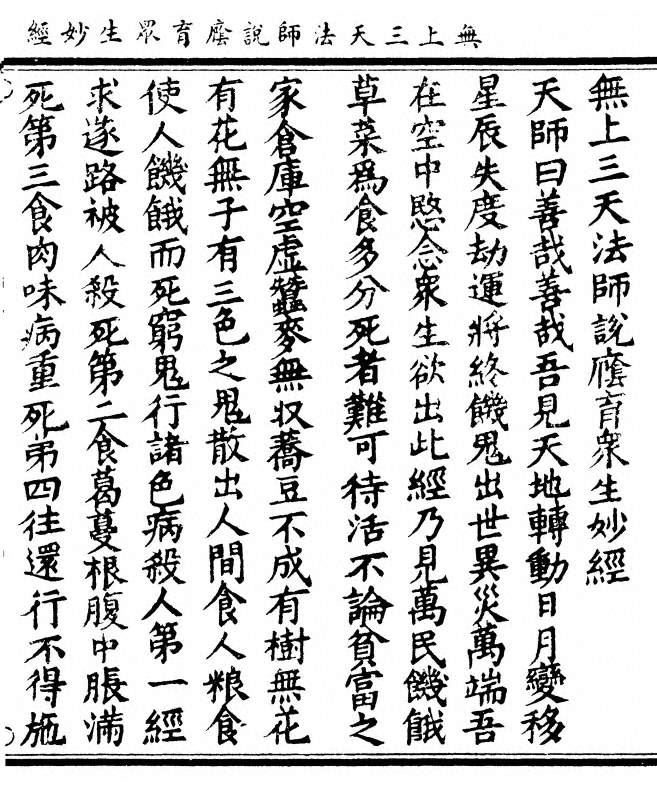 無上三天法師說廕育眾生妙經
無上三天法師說廕育衆生妙經
天師曰善哉善哉吾見天地轉動日月變移
星辰失度劫運將終饑鬼出世異災萬端吾
在空中愍念衆生欲出此經乃見萬民饑餓
草菜爲食多分死者難可待活不論貧富之
家倉庫空虛蠶麥無収蕎豆不成有樹無花
有花無子有三色之鬼散出人間食人粮食
使人饑餓而死窮鬼行諸色病殺人第一經
求遂路被人殺死第二食葛蔓根腹中脹滿
死第三食肉味病重死弟四往還行不得施